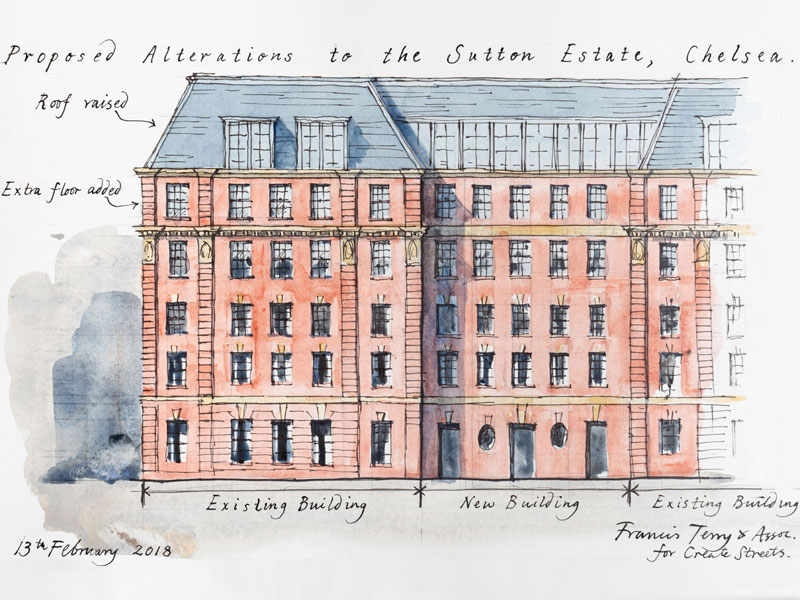 Proposed Alterations to the Sutton Estate, Chelsea.
Roof raised
Extra floor added
Existing Building
New Building
Existing Building
13th February 2018
Francis Terry & Assoc.
for Create Streets.